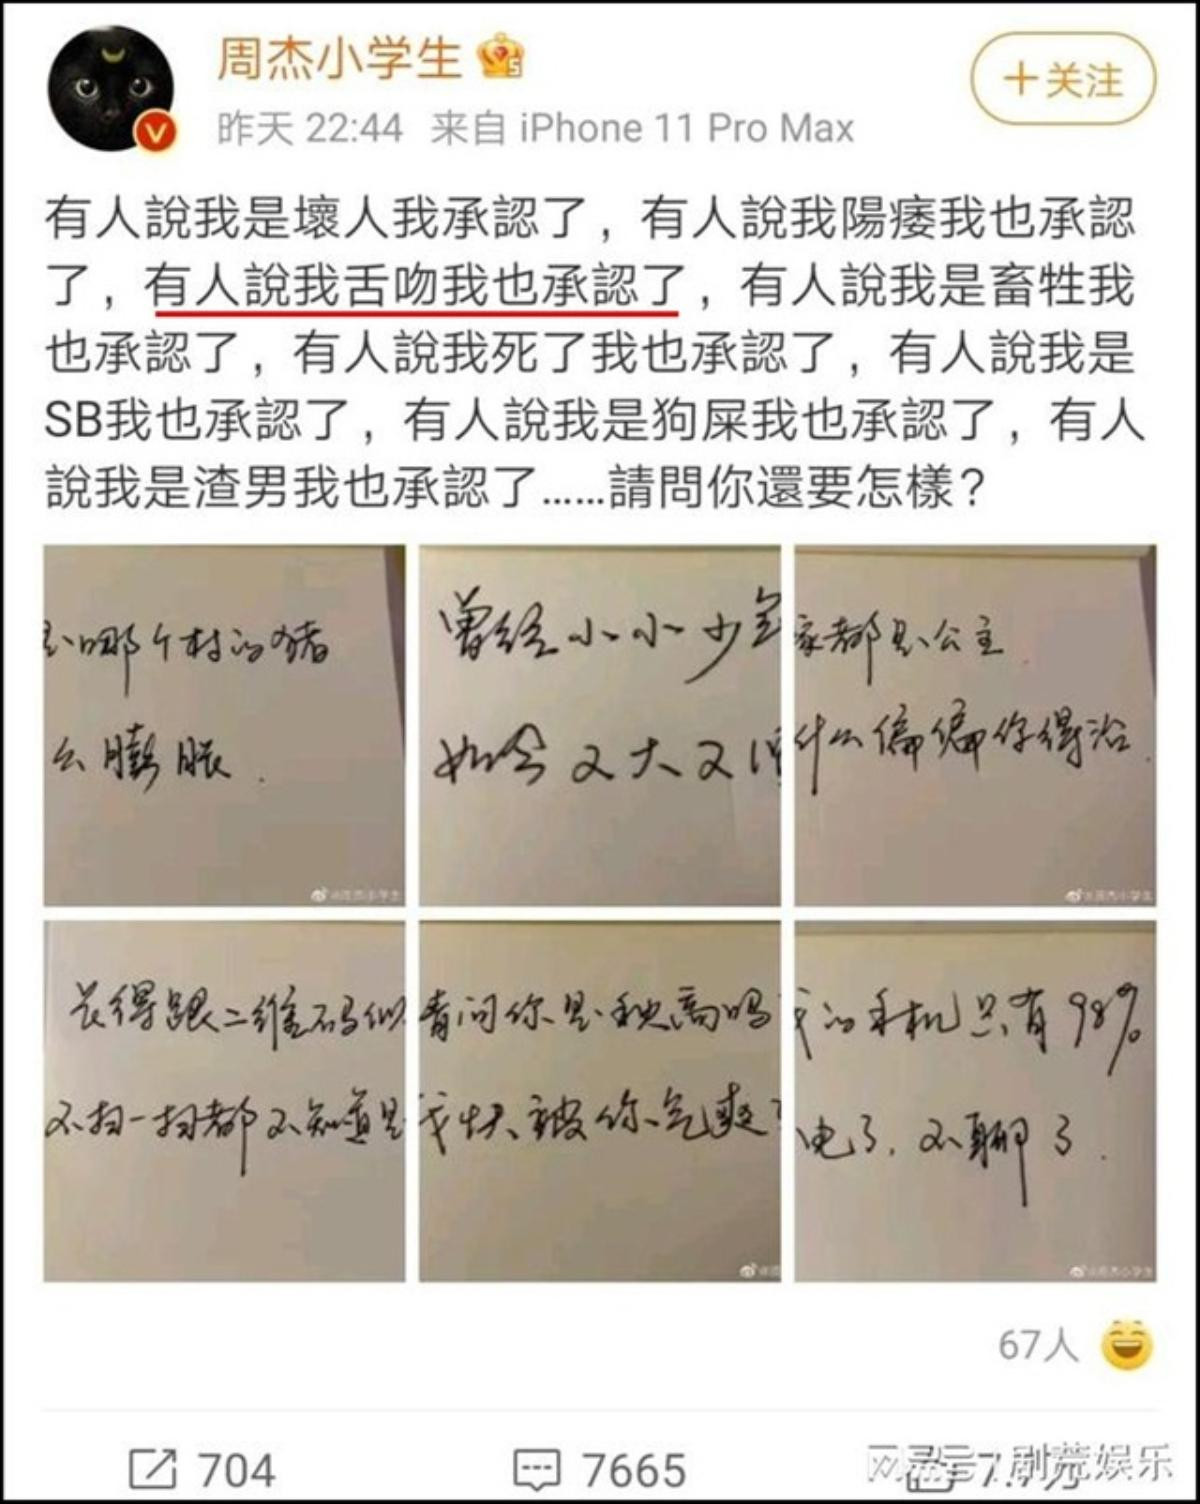 周杰小学生
昨天 22:44 来自 iPhone 11 Pro Max
+关注
有人說我是壞人我承認了，有人說我陽痿我也承認
了，有人說我舌吻我也承認了，有人說我是畜牲我
也承認了，有人說我死了我也承認了，有人說我是
SB我也承認了，有人說我是狗屎我也承認了，有人
說我是渣男我也承認了……請問你還要怎樣？
是哪个村的猪
么膨胀.
曾经小小少年
如今又大又
家都是公主
什么偏偏你得治.
长得跟二维码似
不扫一扫都不知道是
请问你是秋高吗
我快被你气爽了
我的手机只有98%
电了，不聊了.
67人
704
7665
网易号 / 剧荒娱乐